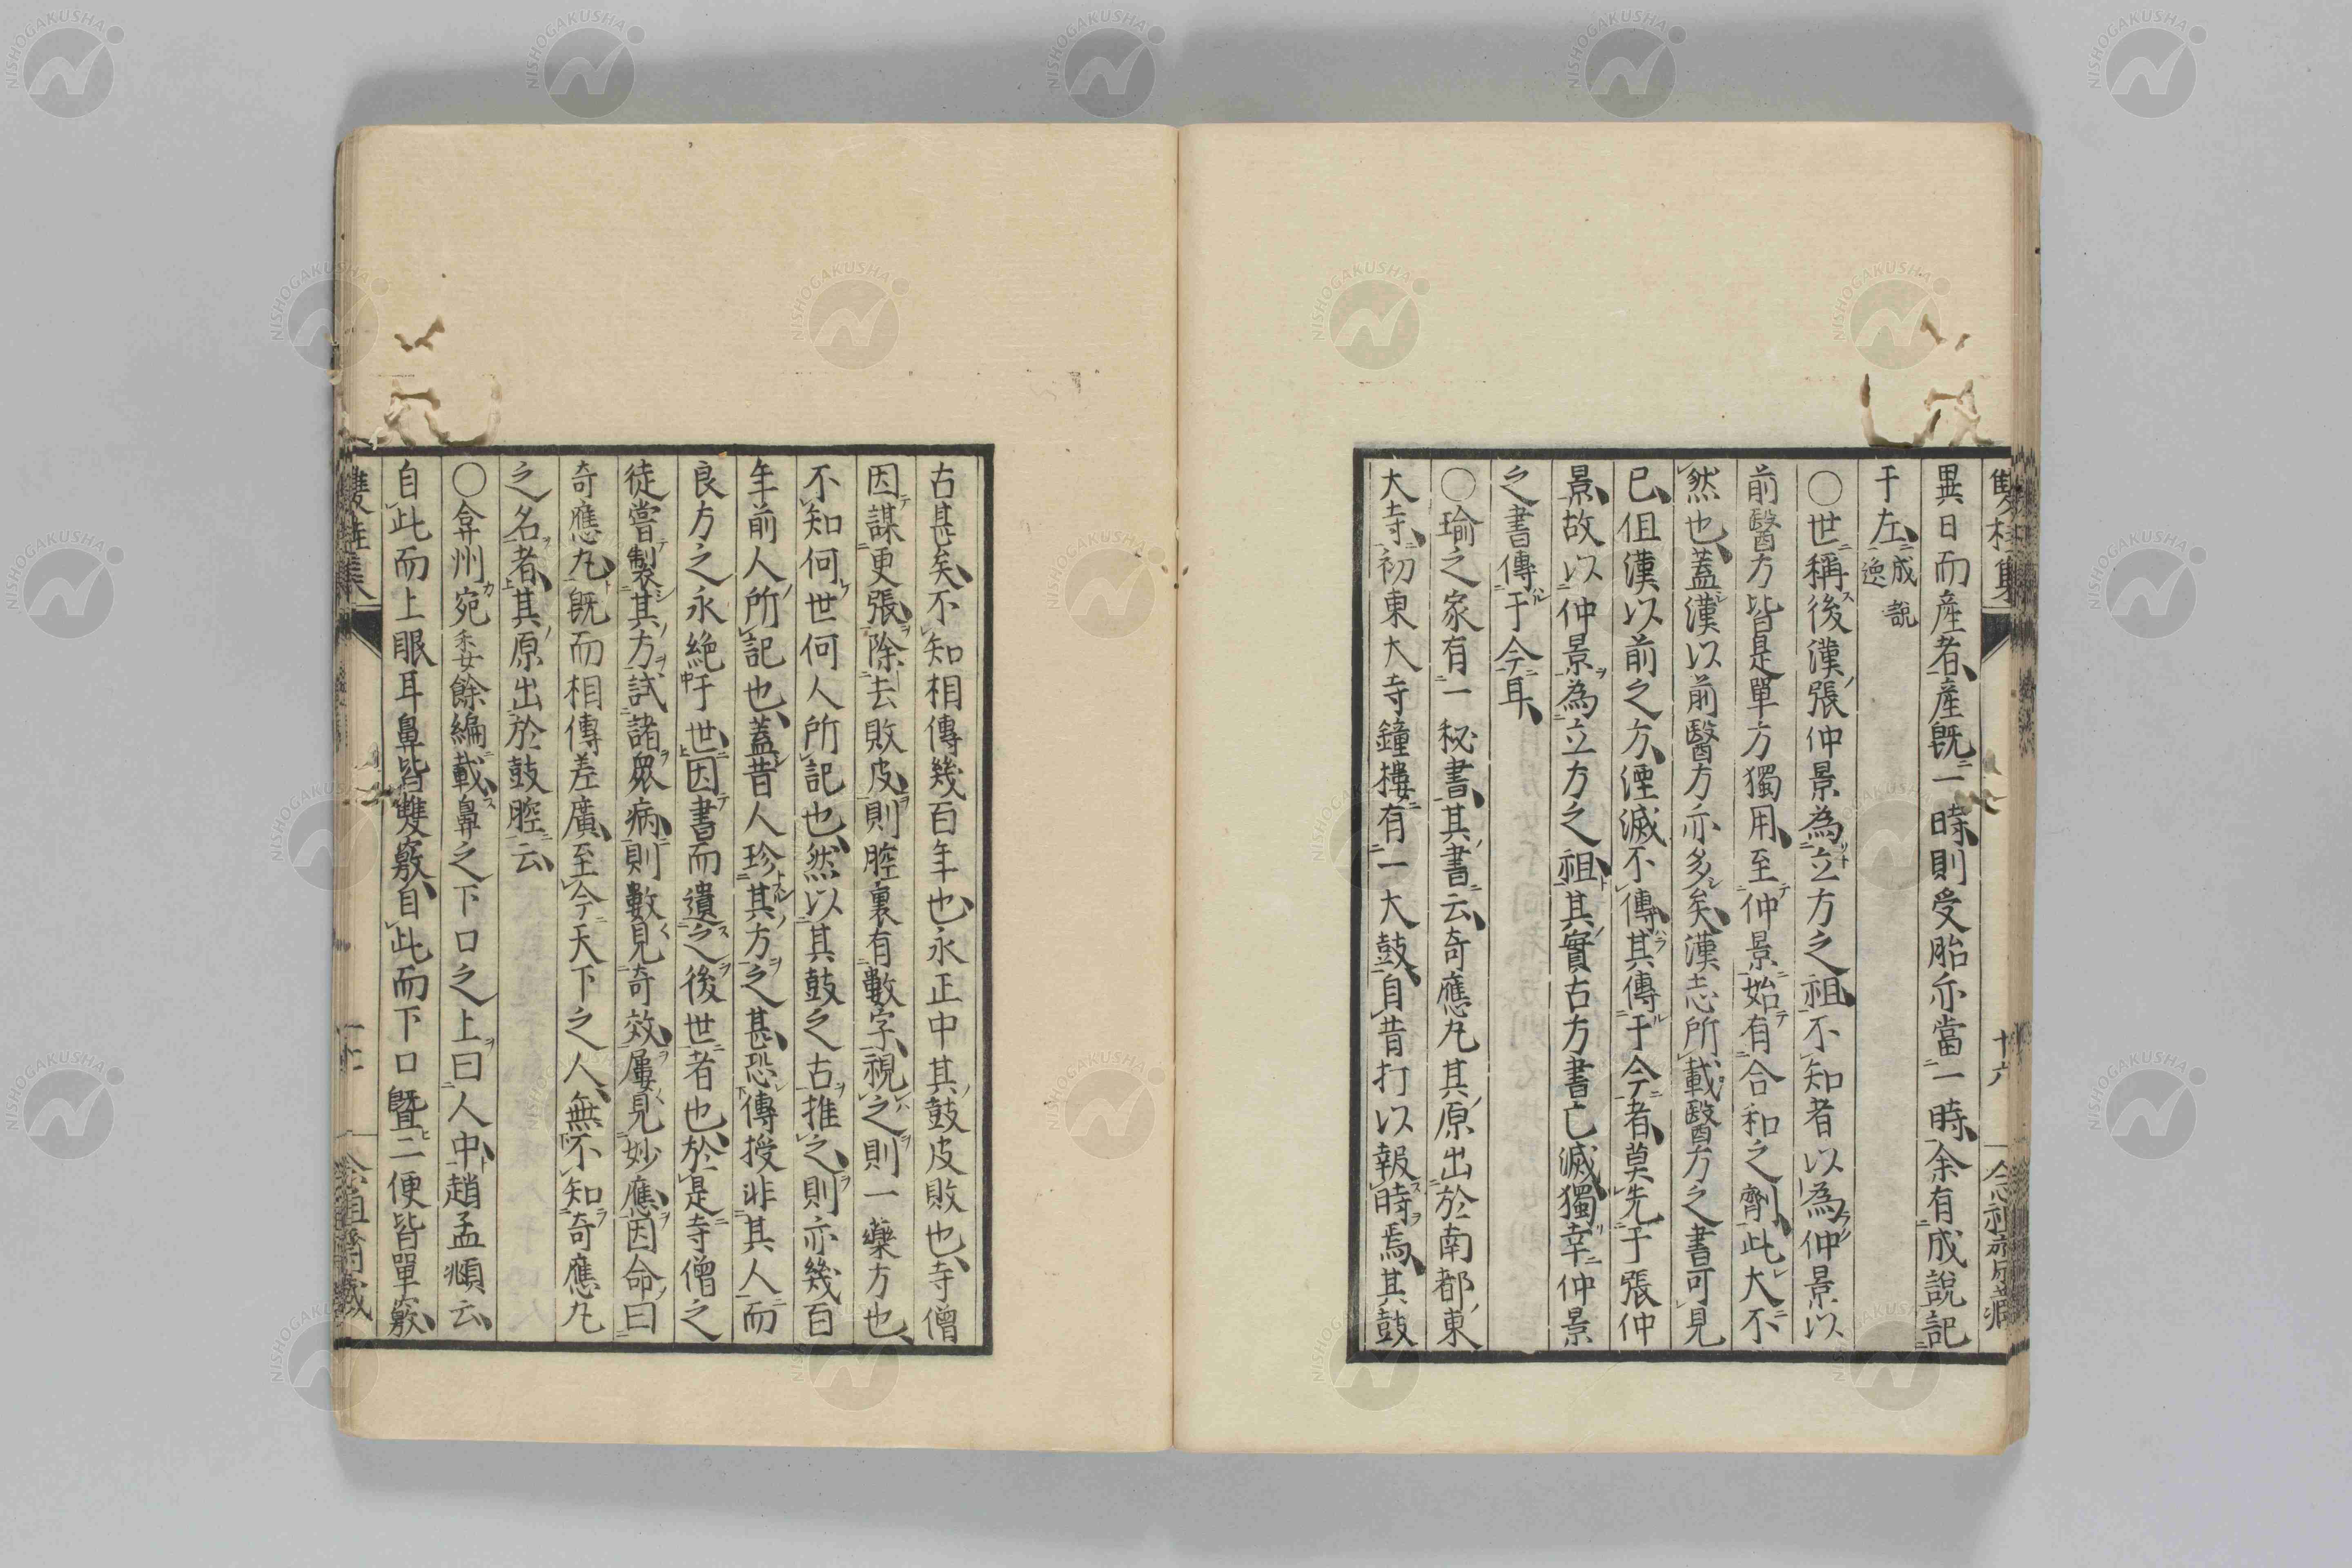 異日而産者、産既一時、則受胎亦當一時、余有成説記
于左、成説逸
〇世稱後漢張仲景為立方之祖、不知者以為仲景以
前醫方皆是單方獨用、至仲景始有合和之劑、此大不
然也、蓋漢以前醫方亦多矣、漢志所載醫方之書可見
已、但漢以前之方、湮滅不傳、其傳于今者、莫先于張仲
景、故以仲景為立方之祖、其實古方書亡滅、獨幸仲景
之書傳于今耳、
〇瑜之家有一秘書、其書云、奇應丸其原出於南都東
大寺、初東大寺鐘樓有一大鼓、自昔打以報時焉、其鼓
古甚矣、不知相傳幾百年也、永正中其鼓皮敗也、寺僧
因謀更張、除去敗皮、則腔裏有數字、視之則一藥方也、
不知何世何人所記也、然以其鼓之古推之、則亦幾百
年前人所記也、蓋昔人珍其方之甚、恐傳授非其人而
良方之永絶于世、因書而遺之後世者也、於是寺僧之
徒嘗製其方試諸衆病、則數見奇效、屢見妙應、因命曰
奇應丸、既而相傳差廣、至今天下之人、無不知奇應丸
之名者、其原出於鼓腔云、
〇弇州宛委餘編載、鼻之下口之上曰人中、趙孟頫云、
自此而上眼耳鼻皆雙竅、自此而下口曁二便皆單竅、